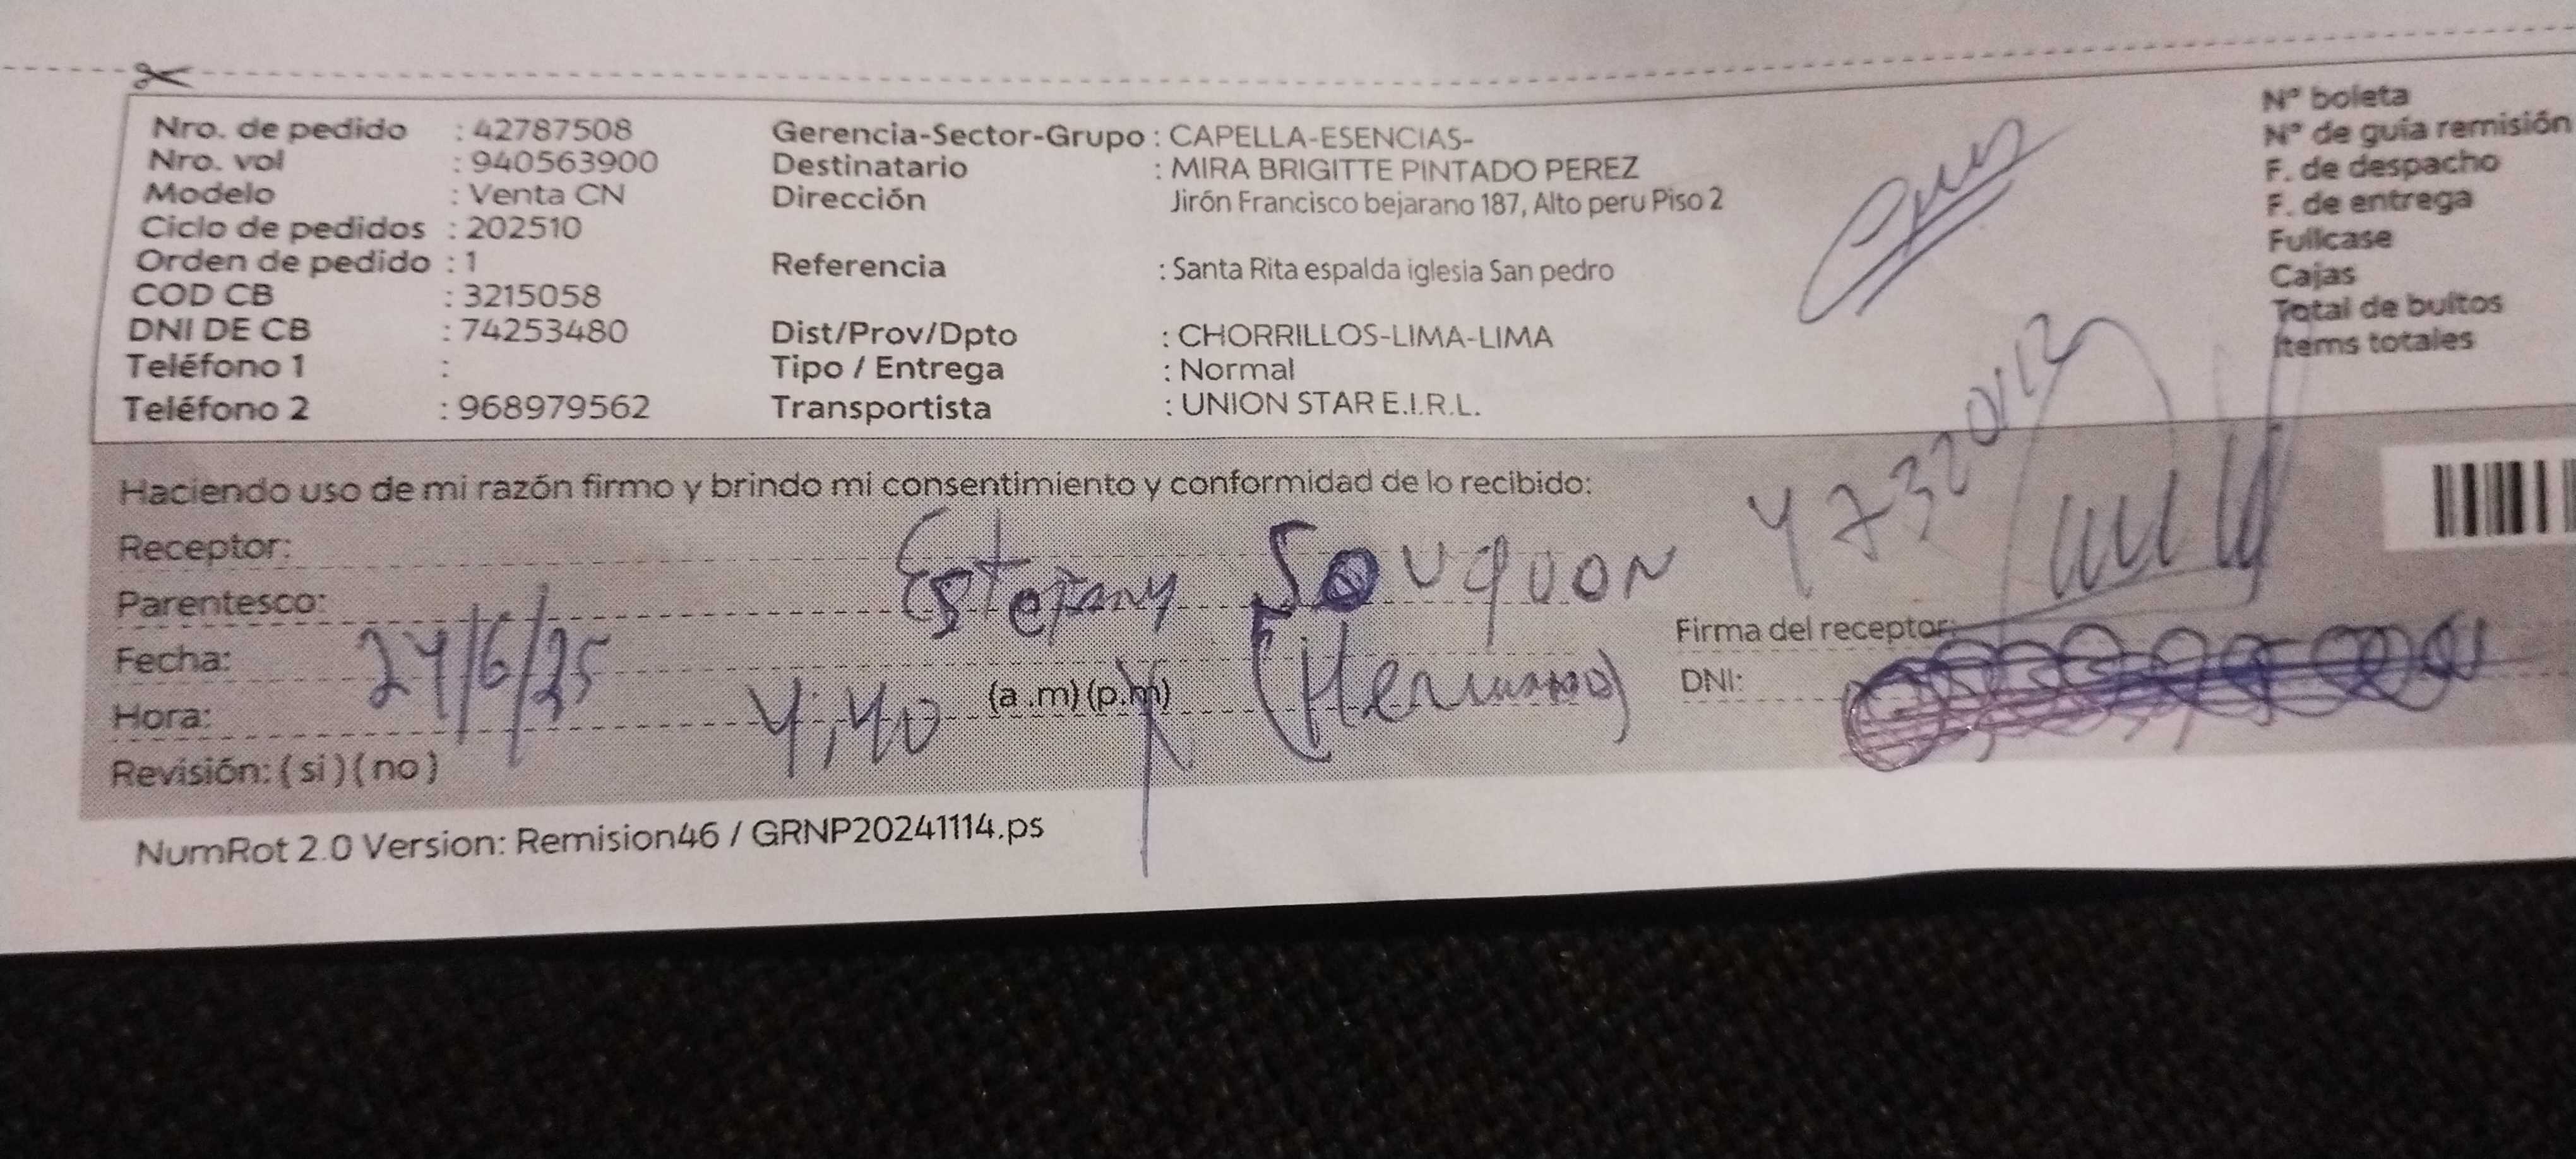 Nro. de pedido : 42787508
Nro. vol : 940563900
Modelo : Venta CN
Ciclo de pedidos : 202510
Orden de pedido : 1
COD CB : 3215058
DNI DE CB : 74253480
Teléfono 1 :
Teléfono 2 : 968979562
Gerencia-Sector-Grupo : CAPELLA-ESENCIAS-
Destinatario : MIRA BRIGITTE PINTADO PEREZ
Dirección Jirón Francisco bejarano 187, Alto peru Piso 2
Referencia : Santa Rita espalda iglesia San pedro
Dist/Prov/Dpto : CHORRILLOS-LIMA-LIMA
Tipo / Entrega : Normal
Transportista : UNION STAR E.I.R.L.
N° boleta
N° de guía remisión
F. de despacho
F. de entrega
Fullcase
Cajas
Total de bultos
Ítems totales
Haciendo uso de mi razón firmo y brindo mi consentimiento y conformidad de lo recibido:
Receptor: Estefany
Parentesco:
Fecha: 24/6/25
Hora: 4:40 (a.m) (p.m)
Revisión: (si) (no)
Firma del receptor:
DNI:
NumRot 2.0 Version: Remision46 / GRNP20241114.ps